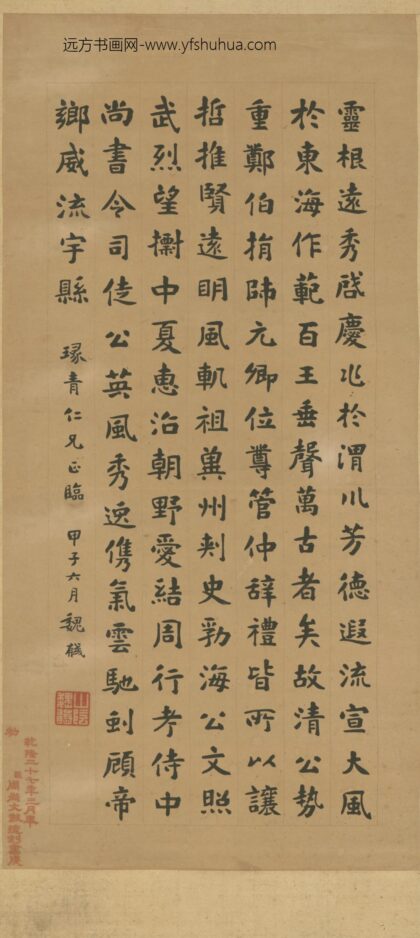 远方书画网-www.yfshuhua.com
靈根遠秀啓慶兆於渭川芳德遐流宣大風
於東海作範百王垂聲萬古者矣故清公勢
重鄭伯捐師元卿位尊管仲辭禮皆所以讓
哲推賢遠明風軌祖冀州刺史勃海公文照
武烈望中夏惠治朝野愛結周行考侍中
尚書令司徒公英風秀逸儁氣雲馳劍顧帝
鄉威流宇縣
琢青仁兄正臨 甲子六月 魏戫